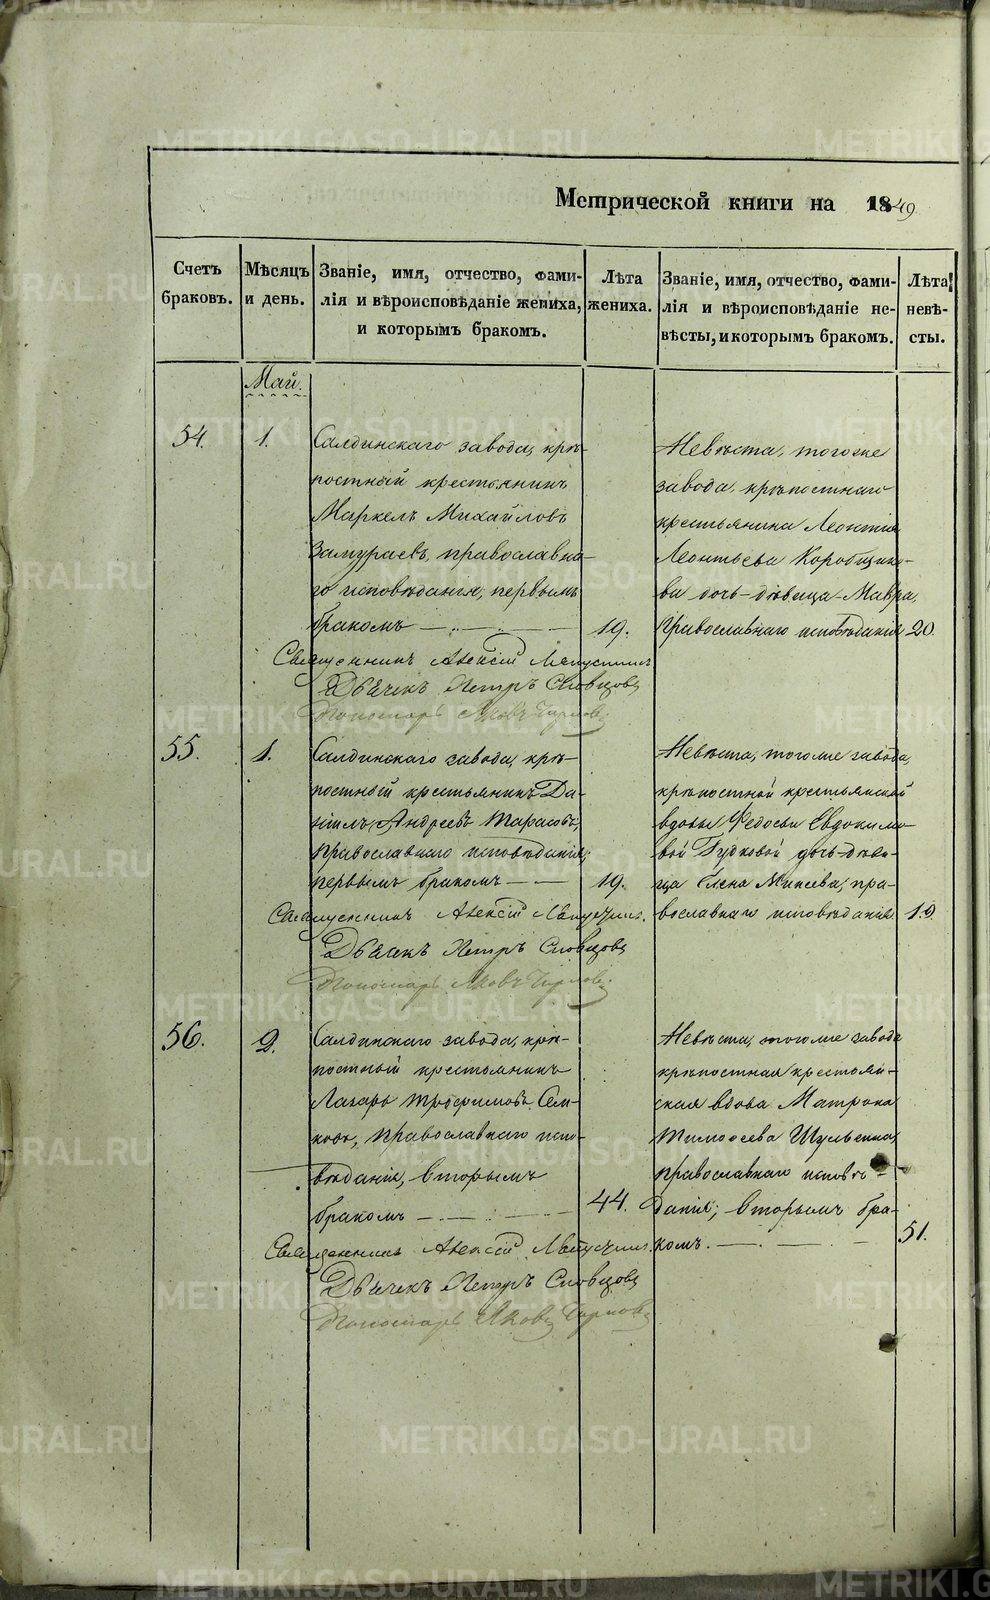 Метрической книги на 1849
Счетъ браковъ.
Мѣсяцъ и день.
Званіе, имя, отчество, фами-
лія и вѣроисповѣданіе жениха,
и которымъ бракомъ.
Лѣта
жениха.
Званіе, имя, отчество, фами-
лія и вѣроисповѣданіе не-
вѣсты, и которымъ бракомъ.
Лѣта
невѣ-
сты.
Май.
54.
1.
Салдинскаго завода, крѣ-
постный крестьянинъ
Маркелъ Михайловъ
Замураевъ, православна-
го исповѣданія, первымъ
бракомъ
19.
Невѣста, тогоже
завода, крѣпостнаго
крестьянина Леонтія
Леонтьева Коробщико-
ва дочь-дѣвица-Мавра,
Православнаго исповѣданія
20.
Священникъ Алексій
Дьячекъ Петръ Словцовъ
Пономарь Яковъ
55.
1.
Салдинскаго завода, крѣ-
постный крестьянинъ Да-
ніилъ Андреевъ Тарасовъ,
Православнаго исповѣданія,
первымъ бракомъ
19.
Невѣста, тогоже завода,
крѣпостной крестьянской
вдовы Ѳедосьи Евдокимо-
вой Гудковой дочь-дѣви-
ца Елена Микеева, пра-
вославнаго исповѣданія
19.
Священникъ Алексій
Дьячекъ Петръ Словцовъ
Пономарь Яковъ
56.
2.
Салдинскаго завода, крѣ-
постный крестьянинъ
Лазарь Трофимовъ
православнаго испо-
вѣданія, вторымъ
бракомъ
44.
Невѣста, тогоже завода
крѣпостная крестьян-
ская вдова Матрона
Тимоѳеева Шульгина,
Православнаго исповѣ-
данія; вторымъ бра-
комъ.
51.
Священникъ Алексій
Дьячекъ Петръ Словцовъ
Пономарь Яковъ
METRIKI.GASO-URAL.RU